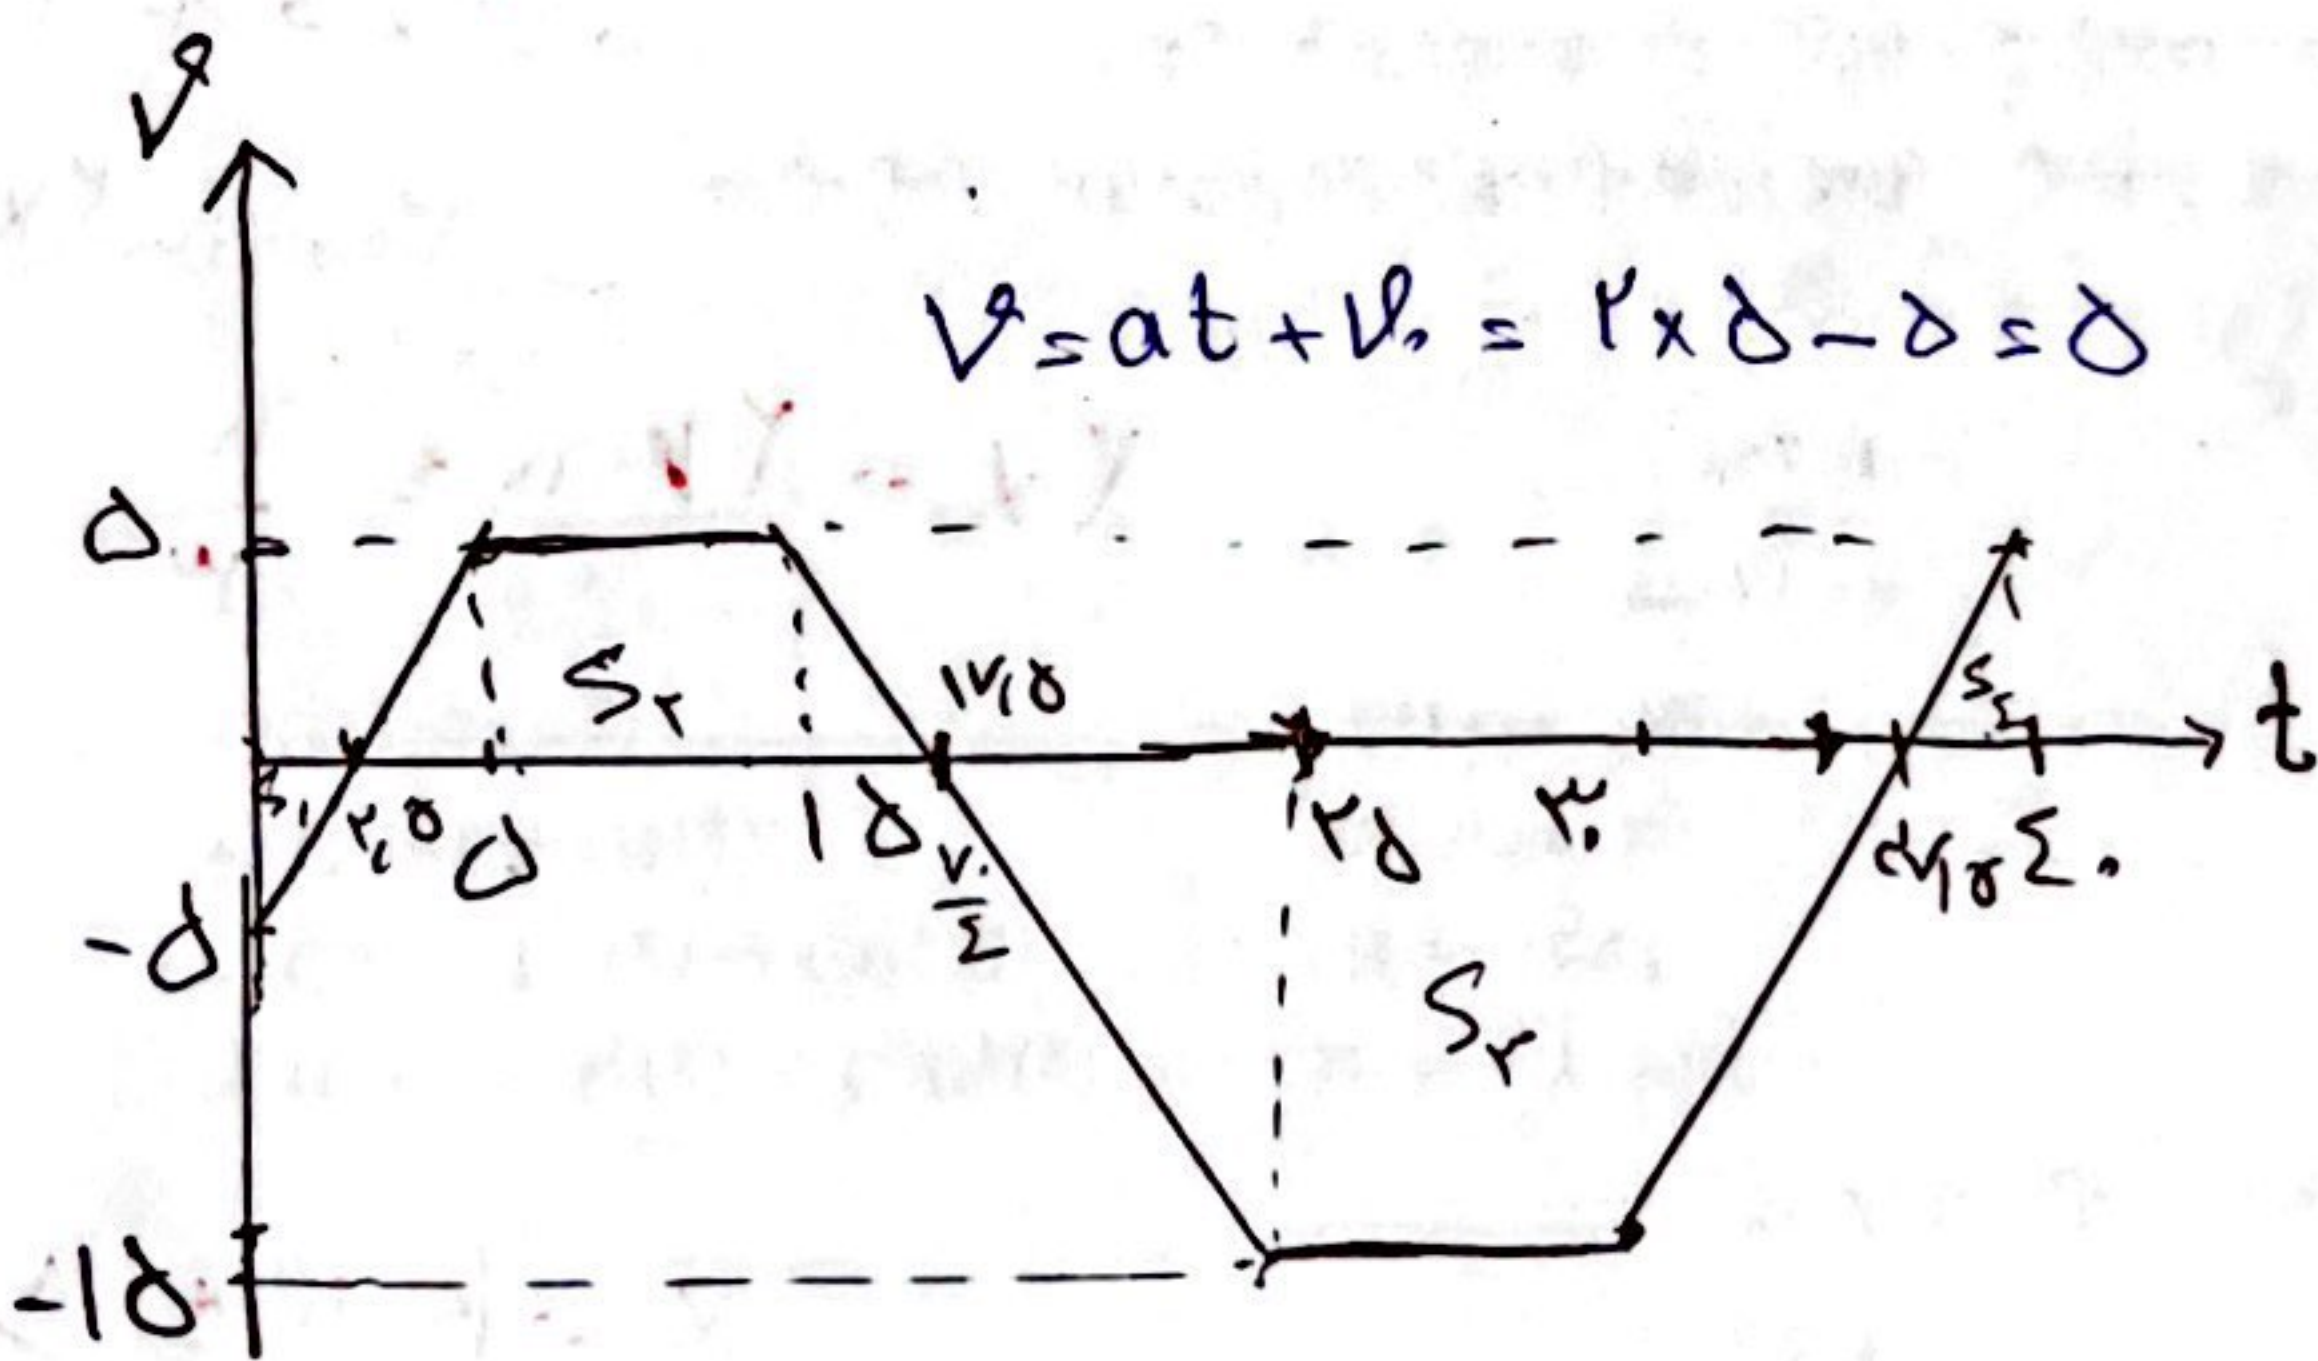 v
v = at + v₀ = ۲×۵ - ۵ = ۵
۵
S۲
۱۷,۵
S٤
t
S۱
۲,۵
۵
۱۵
۷۰/٤
۲۵
۳۰
۳۷,۵
٤۰
-۵
S۳
-۱۵